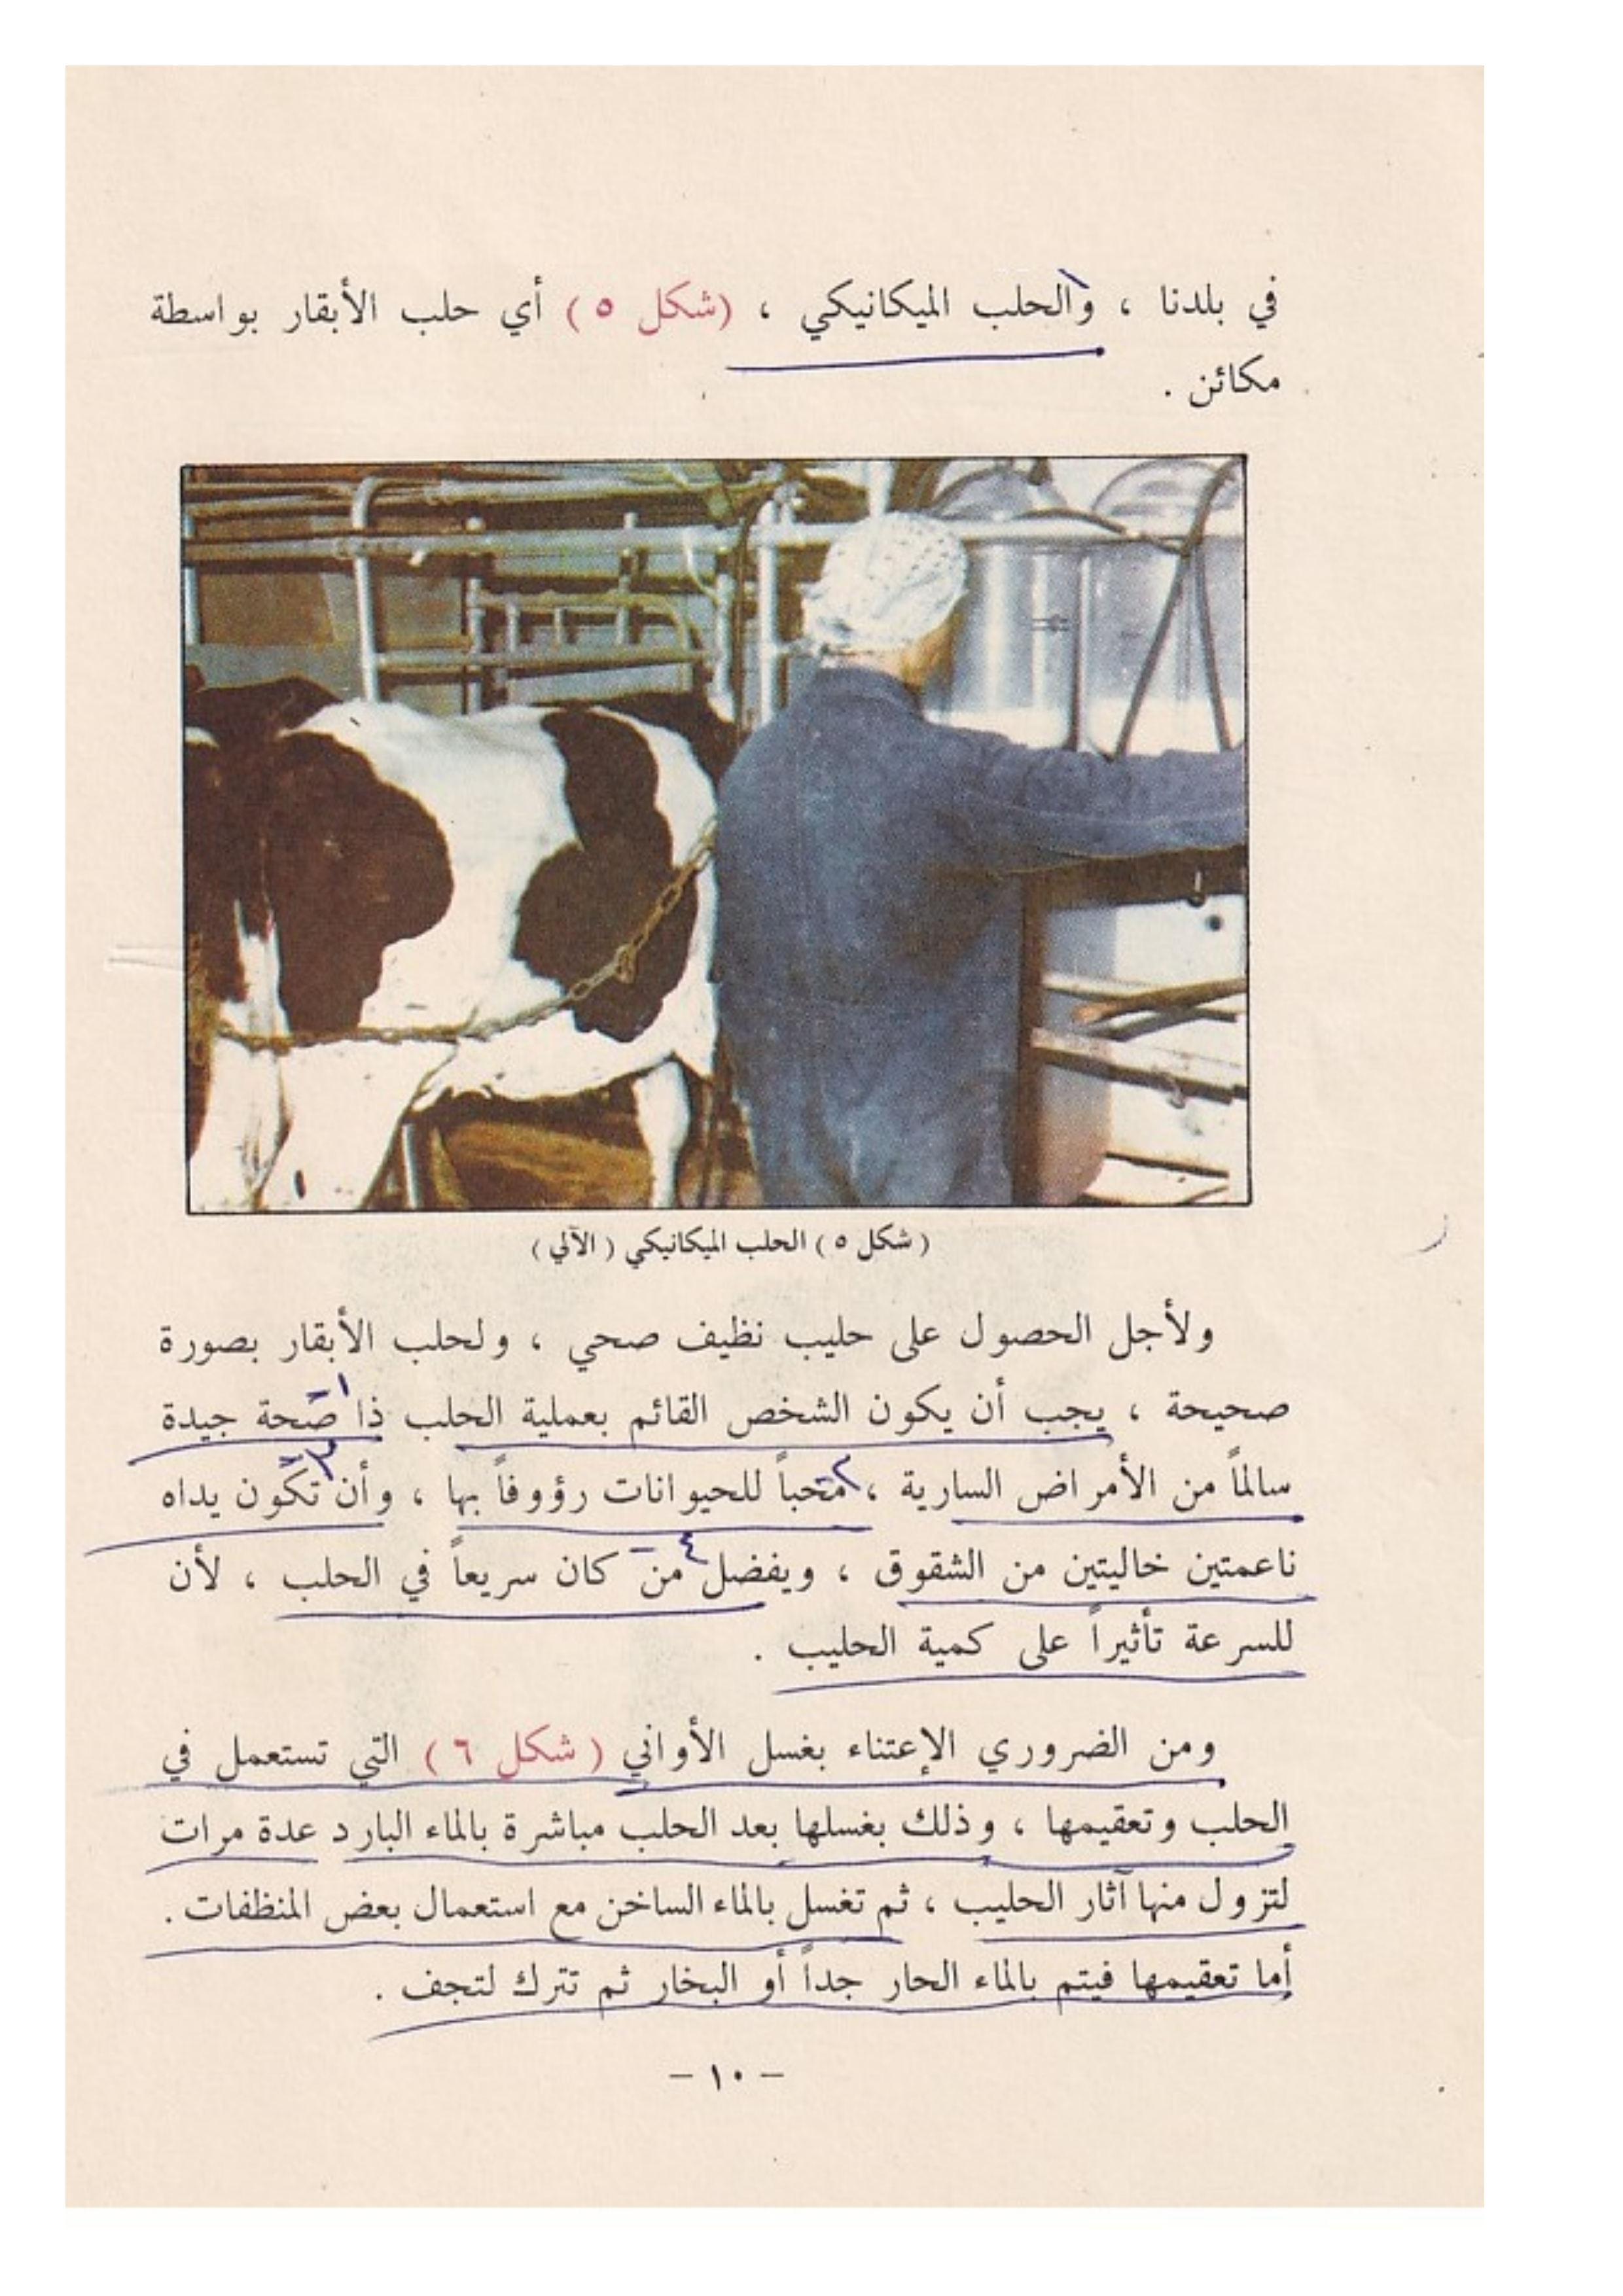 في بلدنا ، والحلب الميكانيكي ، (شكل ٥) أي حلب الأبقار بواسطة
مكائن .
( شكل ٥ ) الحلب الميكانيكي ( الآلي )
ولأجل الحصول على حليب نظيف صحي ، ولحلب الأبقار بصورة
١-
صحيحة ، يجب أن يكون الشخص القائم بعملية الحلب ذا صحة جيدة
٢- ٣-
سالماً من الأمراض السارية ، محباً للحيوانات رؤوفاً بها ، وأن تكون يداه
٤-
ناعمتين خاليتين من الشقوق ، ويفضل من كان سريعاً في الحلب ، لأن
للسرعة تأثيراً على كمية الحليب .
ومن الضروري الإعتناء بغسل الأواني ( شكل ٦ ) التي تستعمل في
الحلب وتعقيمها ، وذلك بغسلها بعد الحلب مباشرة بالماء البارد عدة مرات
لتزول منها آثار الحليب ، ثم تغسل بالماء الساخن مع استعمال بعض المنظفات .
أما تعقيمها فيتم بالماء الحار جداً أو البخار ثم تترك لتجف .
– ١٠ –